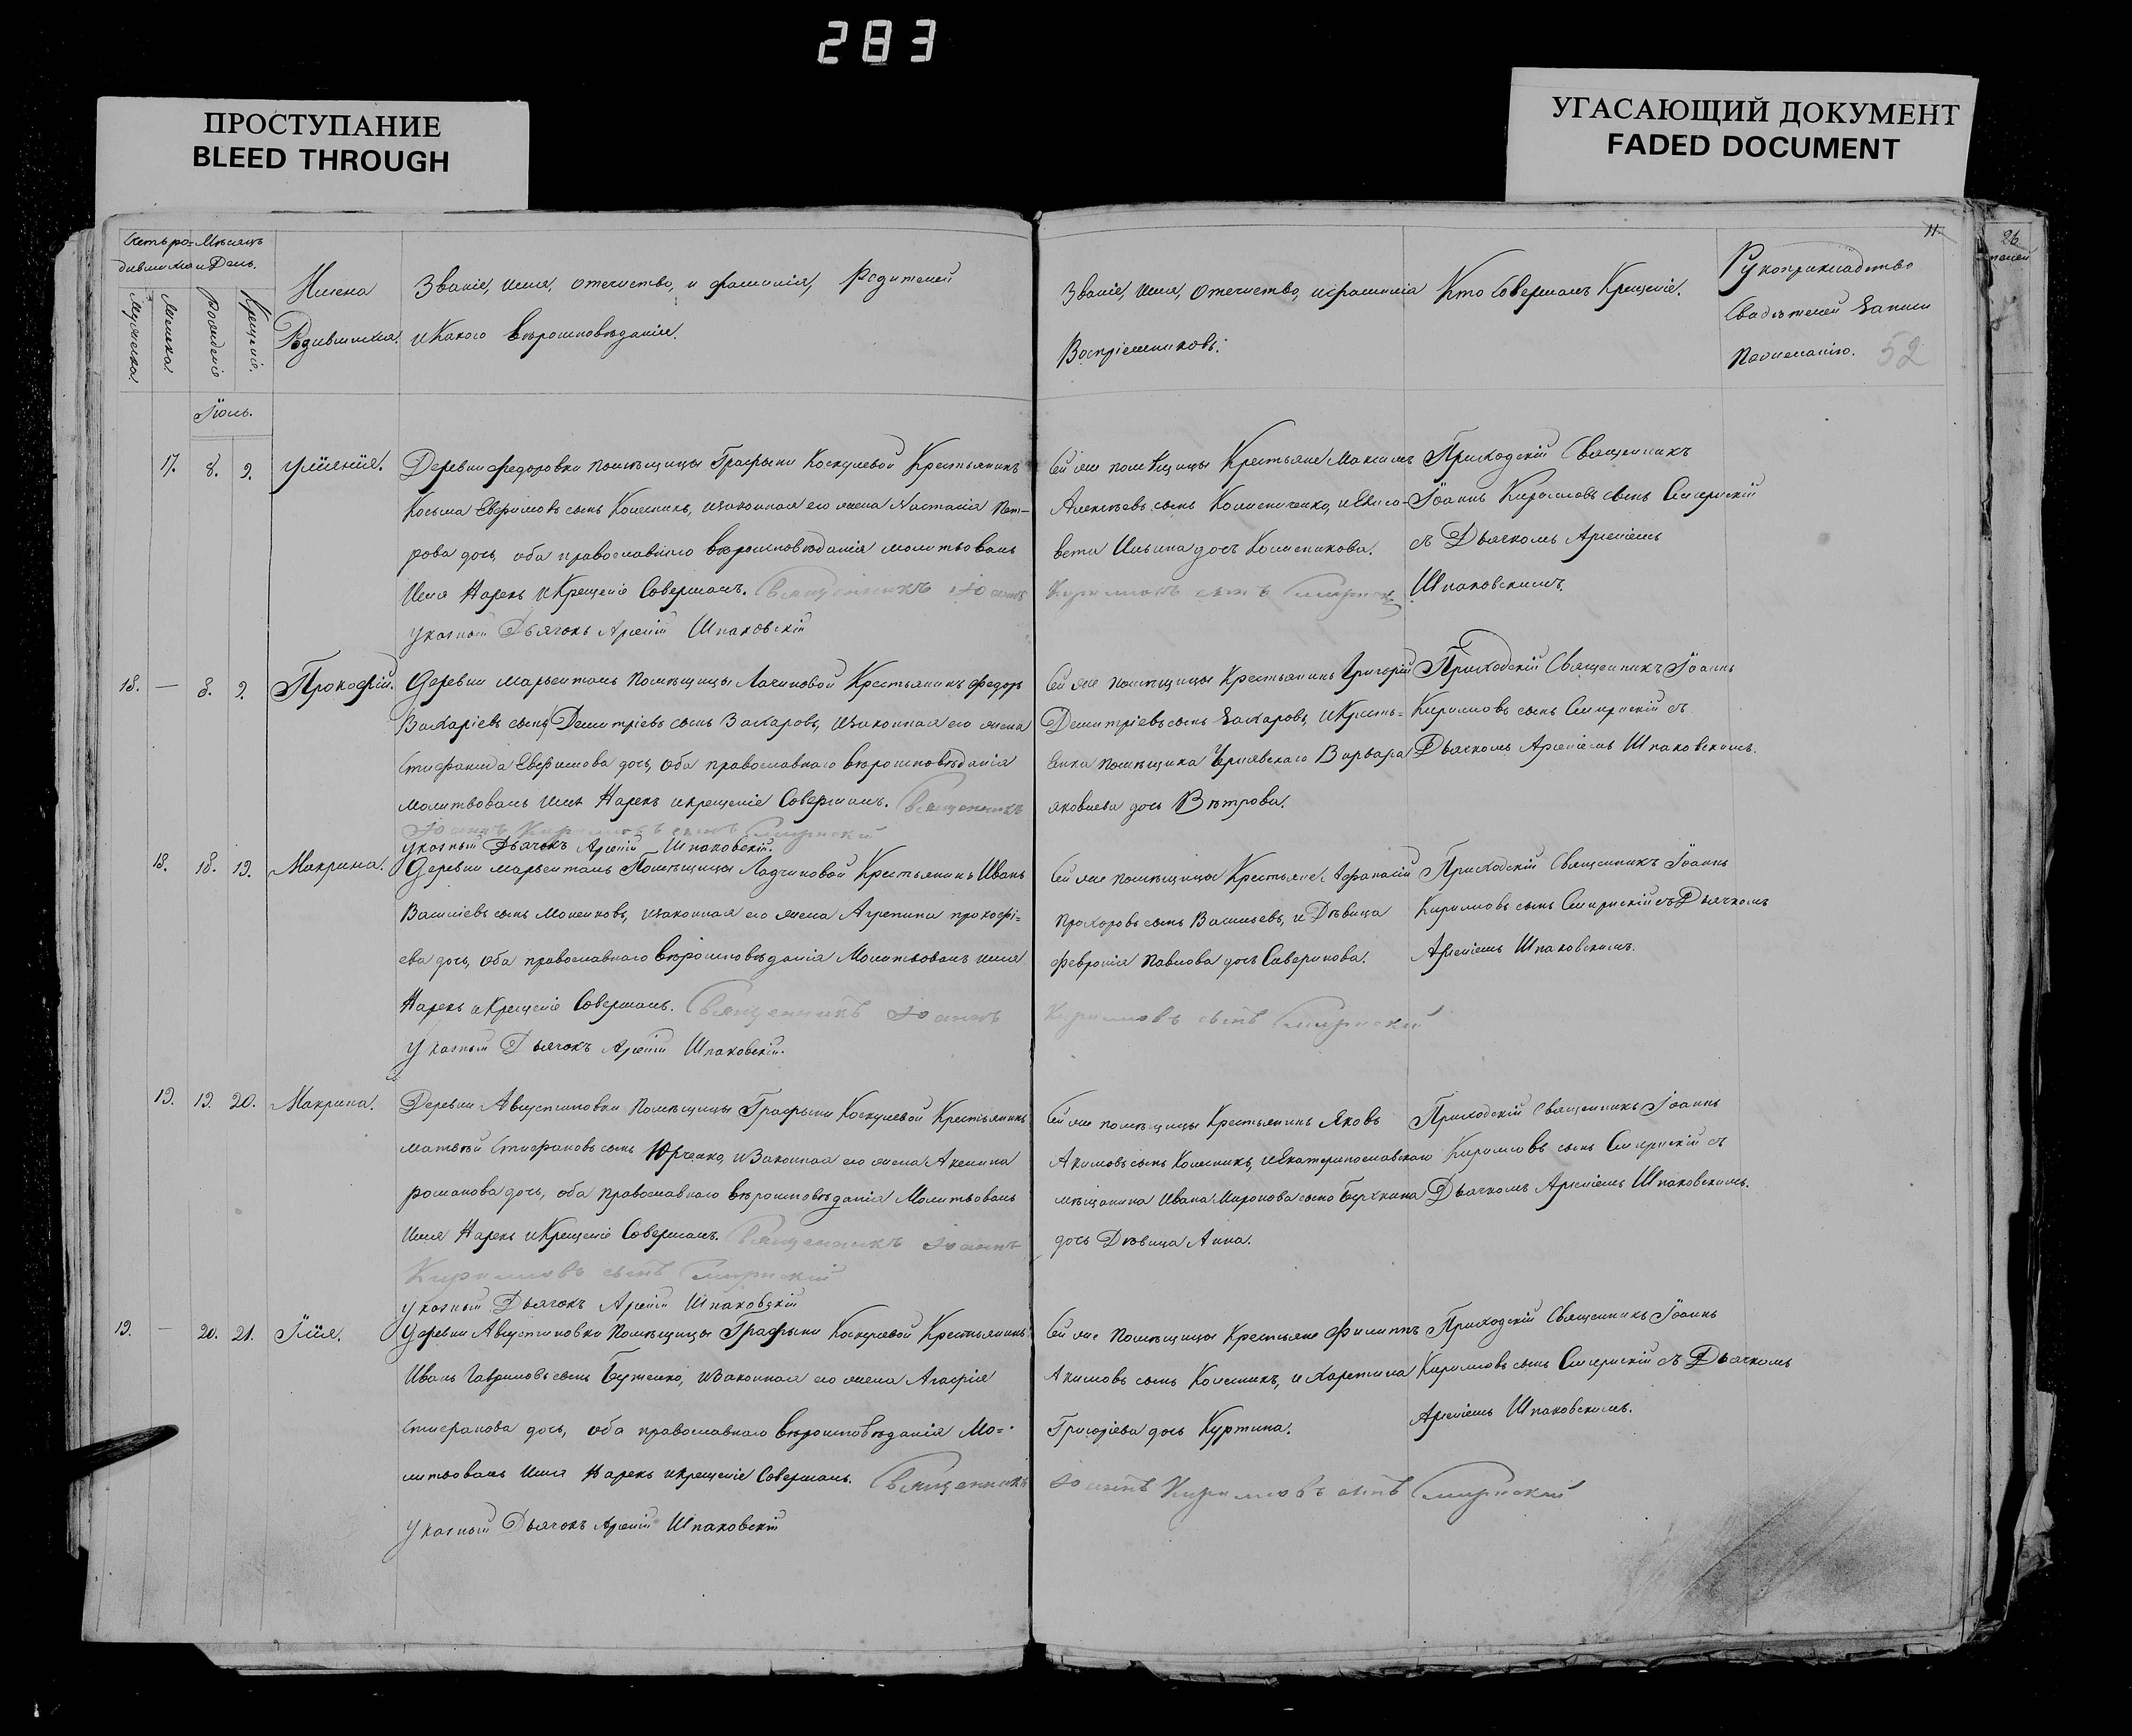 283
ПРОСТУПАНИЕ
BLEED THROUGH
УГАСАЮЩИЙ ДОКУМЕНТ
FADED DOCUMENT
11
26
52
Счетъ ро- Мѣсяцъ
дившихся и День.
Мужеска.
Женска.
Рожденія
Крещенія.
Имена
Родившихся.
Званіе, имя, отечество, и фамилія, Родителей
и Какого вѣроисповѣданія.
Званіе, имя, отечество, и фамилія
Воспріемниковъ.
Кто Совершалъ Крещеніе.
Рукоприкладство
Свидѣтелей Записи
По желанію.
Іюль.
17. 8. 9. Уліянія.
Деревни Федоровки помѣщицы Графыни Коскулевой Крестьянинъ
Косьма Евфимовъ сынъ Колесникъ, и законная его жена Настасія Пет-
рова дочь, оба православнаго вѣроисповѣданія молитвовалъ
Имя Нарекъ и Крещеніе Совершалъ. Священникъ Іоаннъ
Указный Дьячокъ Арсеній Шпаковскій
Сей же помѣщицы Крестьяне Максимъ
Алексѣевъ сынъ Колисниченко, и Елиса-
вета Ильина дочь Колисникова.
Кириловъ сынъ Смирнскій
Приходскій Священникъ
Іоаннъ Кириловъ сынъ Смирнскій
съ Дьячкомъ Арсеніемъ
Шпаковскимъ.
18. — 8. 9. Прокофій.
Деревни Марьенталь Помѣщицы Лачиновой Крестьянинъ Федоръ
Захаріевъ сынъ Демитріевъ сынъ Захаровъ, и законная его жена
Стефанида Евфимова дочь, Оба православнаго вѣроисповѣданія
молитвовалъ имя Нарекъ и крещеніе Совершалъ. Священникъ
Іоаннъ Кириловъ сынъ Смирнскій
Указный Дьячокъ Арсеній Шпаковскій.
Сей же помѣщицы Крестьянинъ Григорій
Демитріевъ сынъ Захаровъ, и Кресть-
янка помѣщика Чернявскаго Варвара
яковлева дочь Вѣтрова.
Приходскій Священникъ Іоаннъ
Кириловъ сынъ Смирнскій съ
Дьячкомъ Арсеніемъ Шпаковскимъ.
18. 18. 19. Макрина.
Деревни Марьенталь Помѣщицы Ладчиновой Крестьянинъ Иванъ
Василіевъ сынъ Моисеиковъ, и законная его жена Агрепина прокофі-
ева дочь, оба православнаго вѣроисповѣданія Молитвовалъ имя
Нарекъ и Крещеніе Совершалъ. Священникъ Іоаннъ
Указный Дьячокъ Арсеній Шпаковскій.
Сей же помѣщицы Крестьяне Афанасій
Прохоровъ сынъ Васильевъ, и Дѣвица
Февронія Павлова дочь Саверинова.
Кириловъ сынъ Смирнскій
Приходскій Священникъ Іоаннъ
Кириловъ сынъ Смирнскій съ Дьячкомъ
Арсеніемъ Шпаковскимъ.
19. 19. 20. Макрина.
Деревни Августиновки Помѣщицы Графыни Коскулевой Крестьянинъ
Матвѣй Стефановъ сынъ Юрченко, и Законная его жена Акелина
романова дочь, оба православнаго вѣроисповѣданія Молитвовалъ
Имя Нарекъ и Крещеніе Совершалъ. Священникъ Іоаннъ
Кириловъ сынъ Смирнскій
Указный Дьячокъ Арсеній Шпаковскій
Сей же помѣщицы Крестьянинъ Яковъ
Акимовъ сынъ Колесникъ, и Екатеринославскаго
мѣщанина Ивана Миронова сына
дочь Дѣвица Анна.
Приходскій Священникъ Іоаннъ
Кириловъ сынъ Смирнскій съ
Дьячкомъ Арсеніемъ Шпаковскимъ.
19. — 20. 21. Ілія.
Деревни Августиновки Помѣщицы Графыни Коскулевой Крестьянинъ
Иванъ Гавриловъ сынъ Бутенко, и Законная его жена Агафія
Стефанова дочь, оба православнаго вѣроисповѣданія Мо-
литвовалъ Имя Нарекъ и крещеніе Совершалъ. Священникъ
Указный Дьячокъ Арсеній Шпаковскій
Сей же Помѣщицы Крестьяне Филиппъ
Акимовъ сынъ Колесникъ, и Харетина
Григоріева дочь Куртина.
Іоаннъ Кириловъ сынъ Смирнскій
Приходскій Священникъ Іоаннъ
Кириловъ сынъ Смирнскій съ Дьячкомъ
Арсеніемъ Шпаковскимъ.